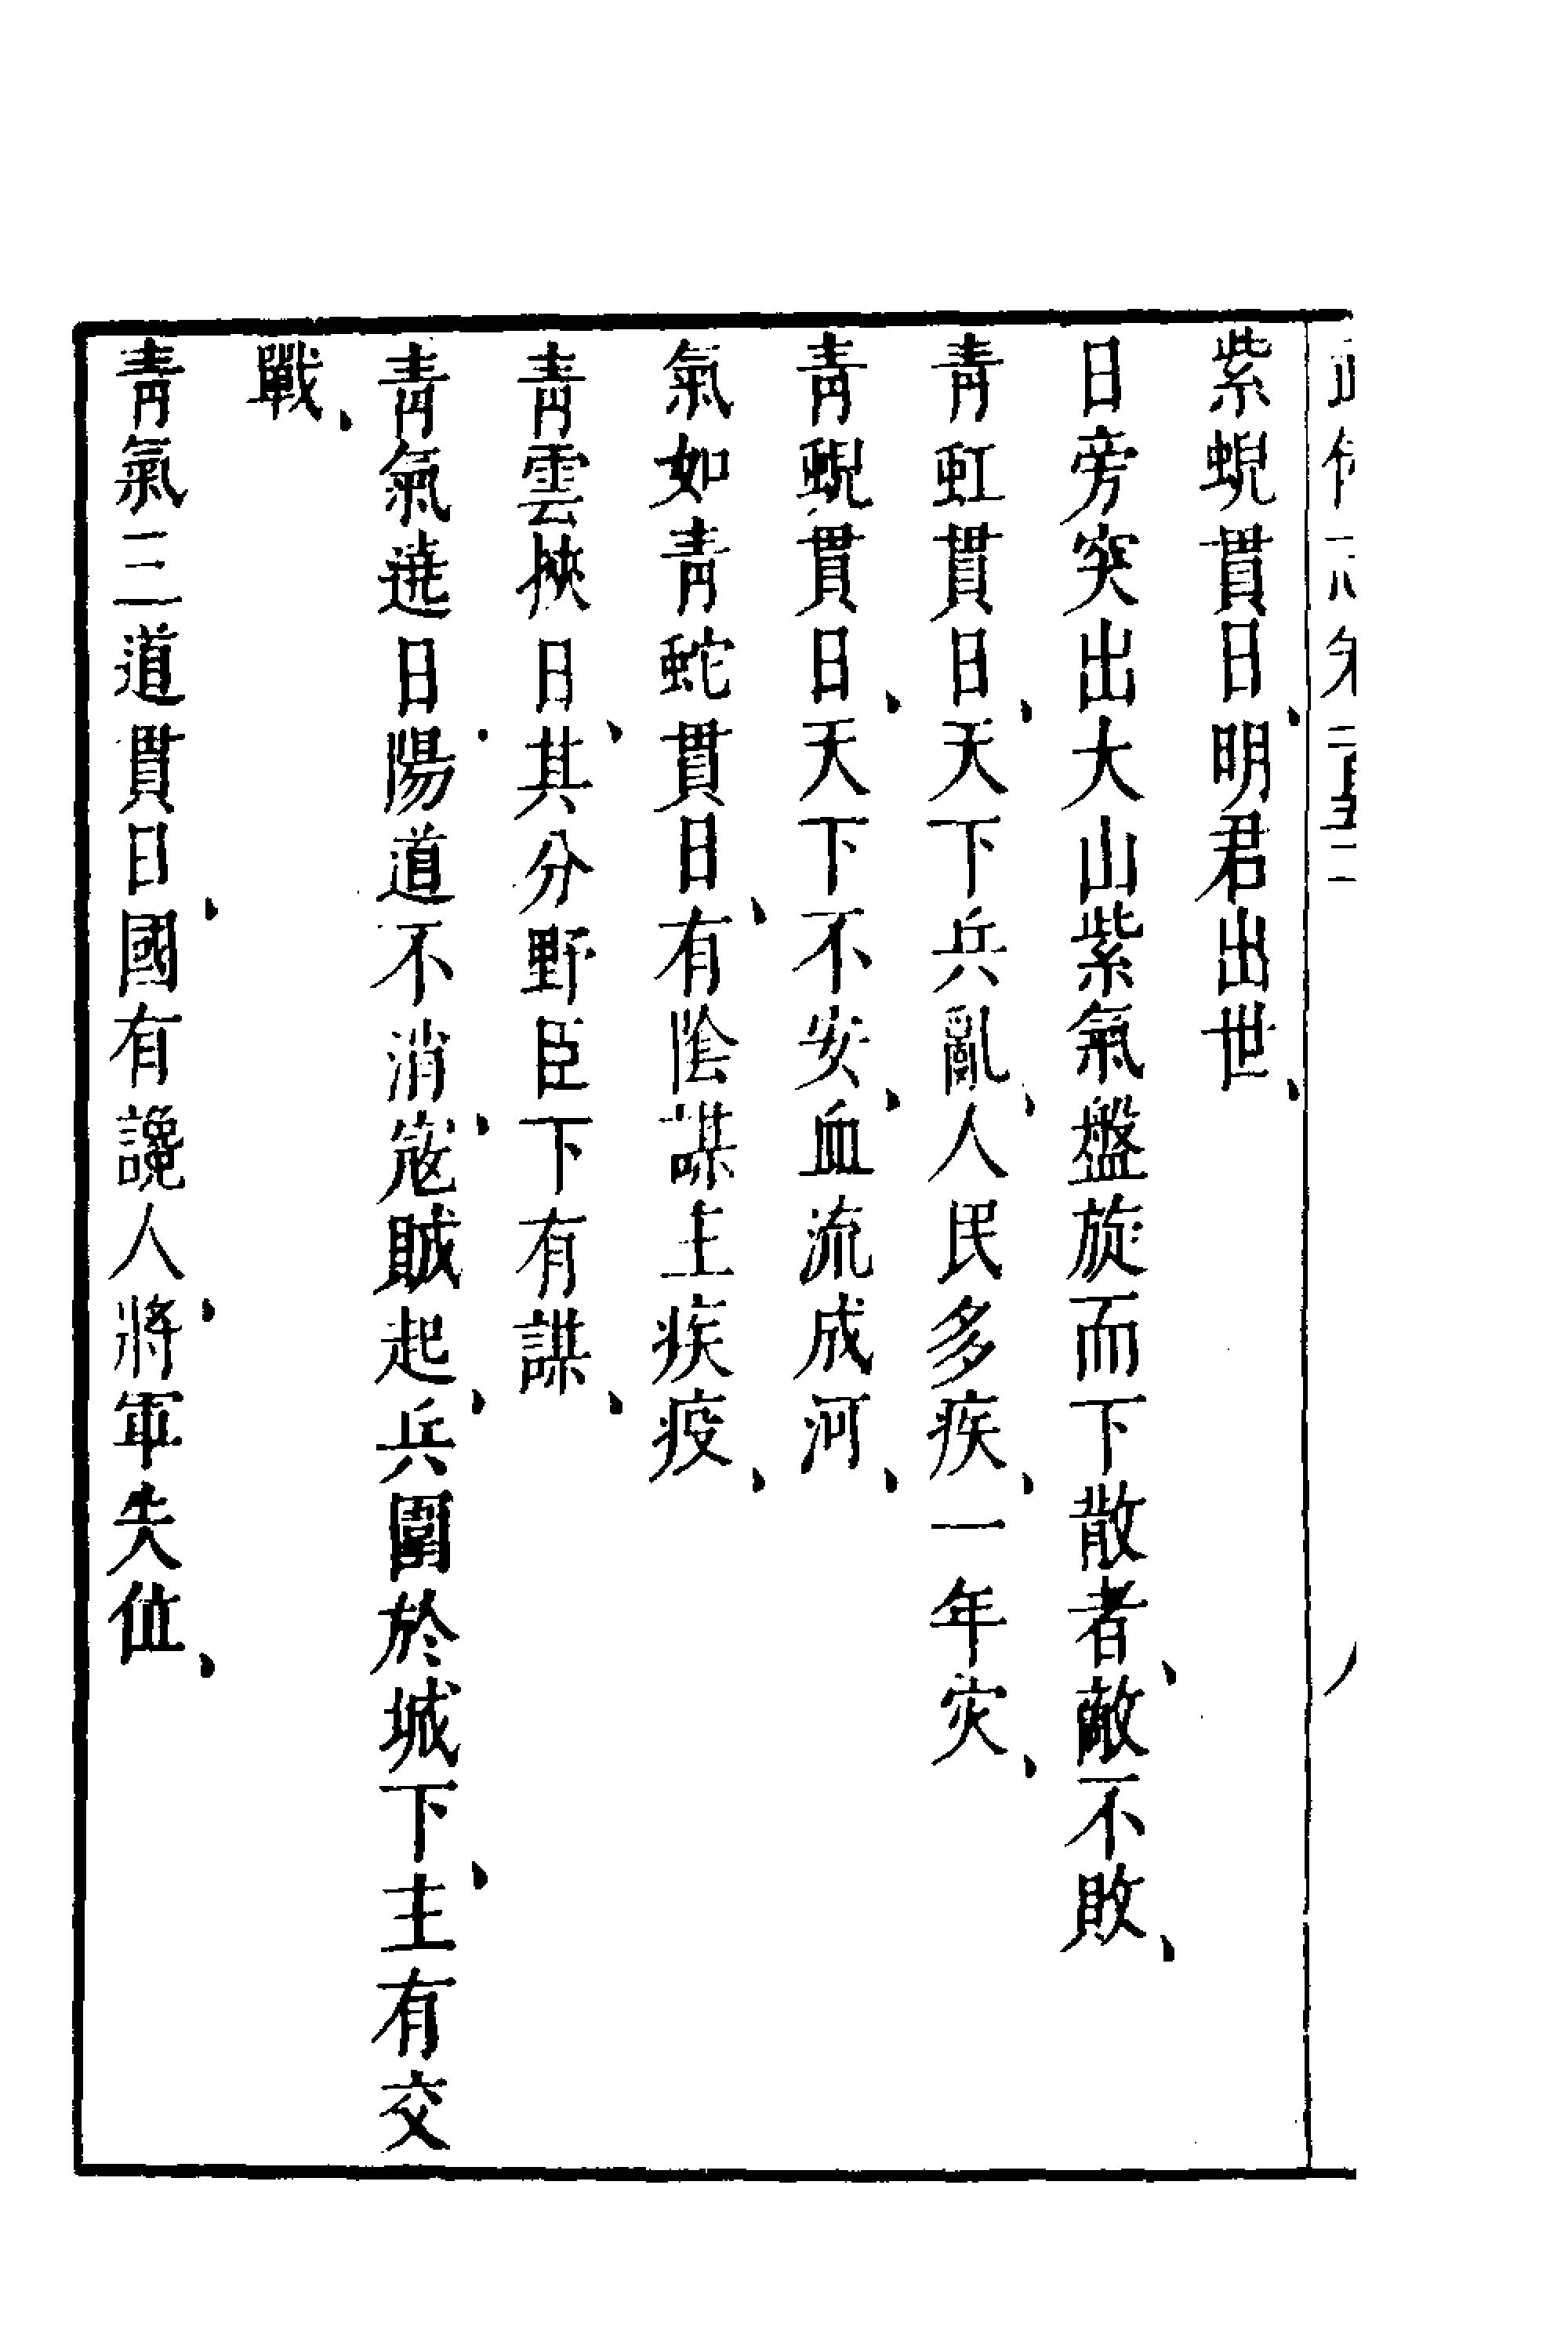 紫蜺貫日、明君出世、
日旁突出大山紫氣盤旋而下散者、敵不敗、
青虹貫日、天下兵亂、人民多疾、一年灾、
青蜺貫日、天下不安、血流成河、
氣如青蛇貫日、有陰謀主疾疫、
青雲挾日、其分野臣下有謀、
青氣遶日、陽道不消、寇賊起、兵圍於城下、主有交
戰、
青氣三道貫日、國有讒人、將軍失位、